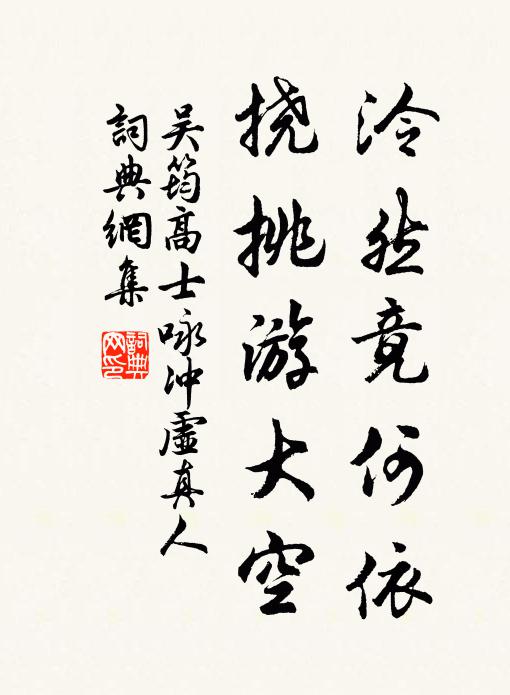 泠然竟何依
挠挑游大空
吴筠高士咏冲虚真人
词典網集
詞典
网印